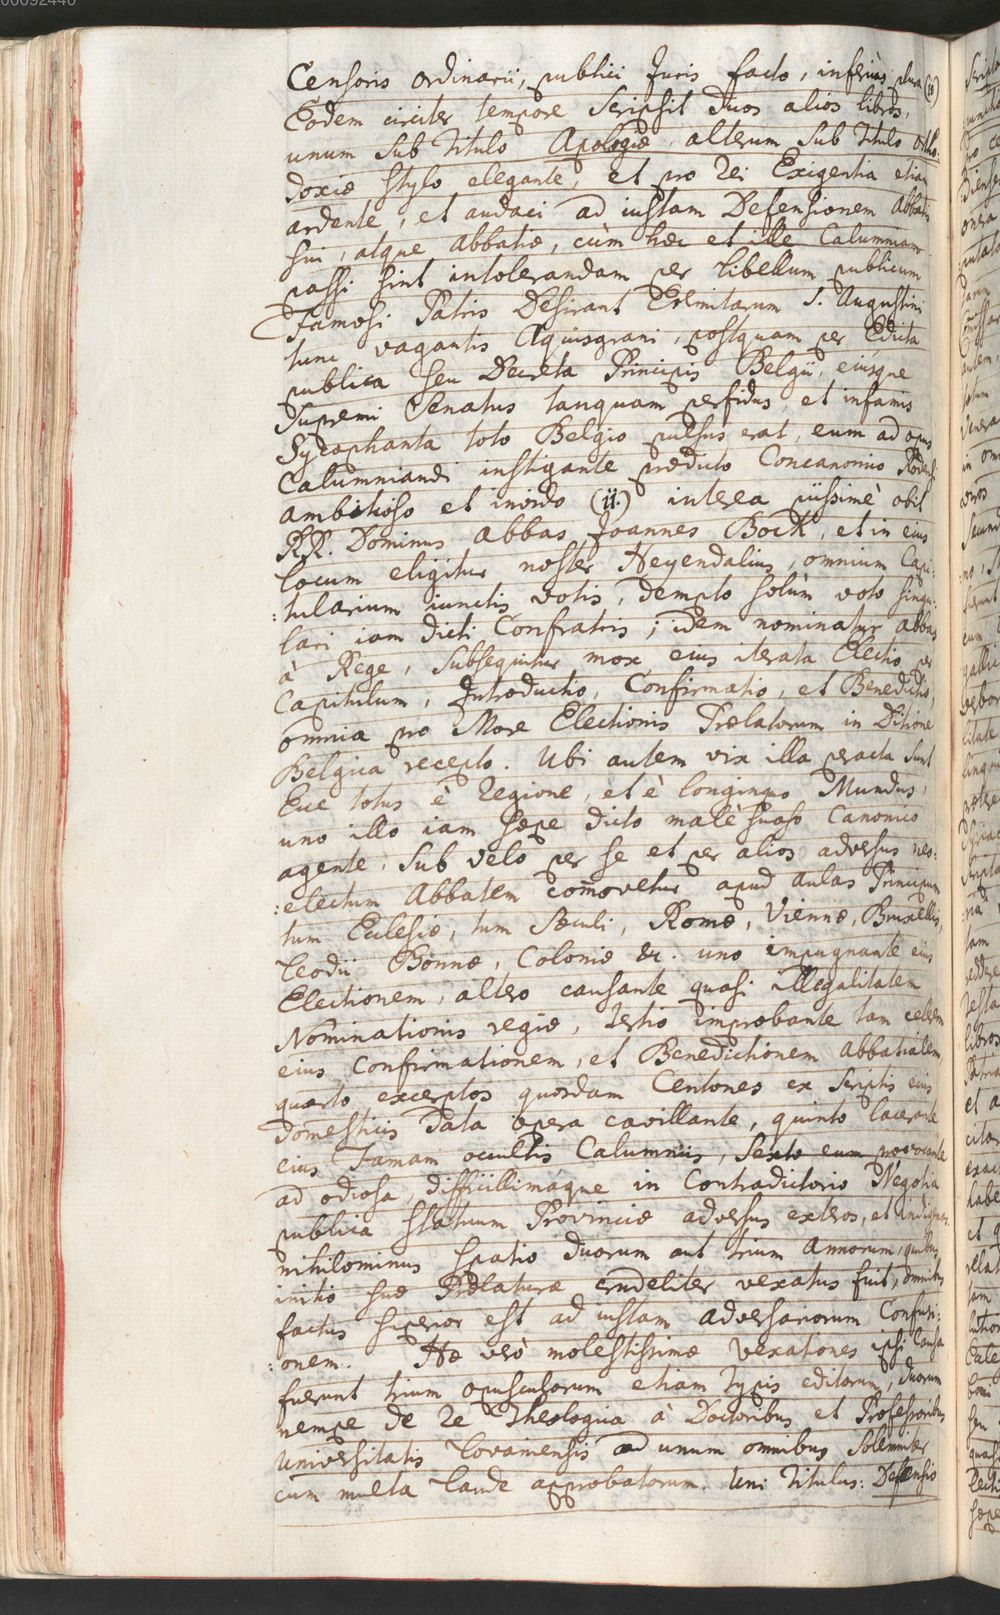 00092440
Censoris ordinarii, publici Juris facto, inferiùs plura (10)
Eodem circiter tempore scripsit duos alios libros,
unum sub Titulo Apologiæ, alterum sub Titulo ortho:
doxiæ stylo elegante, et pro rei Exigentia etiam
ardente, et audaci ad iustam Defensionem Abbatis
sui, atque Abbatiæ, cùm hæc et ille Calumniam
passi sint intolerandam per libellum publicum
Famosi Patris Desirant Eremitarum S. Augustini
tunc vagantis Aquisgrani, postquam per Edicta
publica seu Decreta Principis Belgii, eiusque
Supremi Senatus tanquam perfidus, et infamis
Sycophanta toto Belgio pulsus erat, eum ad opus
Calumniandi instigante prædicto Concanonico
ambitioso et inordo (11.) interea piissimè obit
RR. Dominus Abbas Joannes Bock, et in eius
locum eligitur noster Heyendalius, omnium Capi:
:tularium iunctis votis, dempto solùm voto singu:
lari iam dicti Confratris; idem nominatur abbas
à Rege, subsequitur mox eius iterata Electio per
Capitulum, Introductio, Confirmatio, et Benedictio,
omnia pro More Electionis Prælatorum in Ditione
Belgica recepto. Ubi autem vix illa peracta sunt
Ecce totus è regione, et è longinquo Mundus,
uno illo iam sæpe dicto malè suaso Canonico
agente, sub velo per se et per alios adversus neo:
:electum Abbatem com̄ovetur apud aulas Principum
tum Ecclesiæ, tum Sæculi, Romæ, Viennæ, Bruxellis,
Leodii Bonnæ, Coloniæ &c. uno impugnante eius
Electionem, altero causante quasi illegalitatem
Nominationis regiæ, tertio improbante tam celerem
eius Confirmationem, et Benedictionem Abbatialem,
quarto excerptos quosdam Centones ex scriptis eius
domesticis data opera cavillante, quinto lacerante
eius Famam occultis Calumniis, sexto eum provocante
ad odiosa, difficillimáque in Contradictorio Negotia
publica Statuum Provinciæ adversus exteros, et indigenas.
nihilominus spatio duorum aut trium Annorum, quibus
initio suæ Prælaturæ crudeliter vexatus fuit, omnibus
factus superior est ad iustam adversariorum Confusi:
:onem. Hæ verò molestissimæ Vexationes ipsi Causa
fuerunt trium opusculorum etiam typis editorum, duorum
nempe de re Theologica à Doctoribus et Professoribus
Universitatis Lovaniensis ad unum omnibus solemniter
cum multa laude approbatorum. Uni Titulus: Defensio